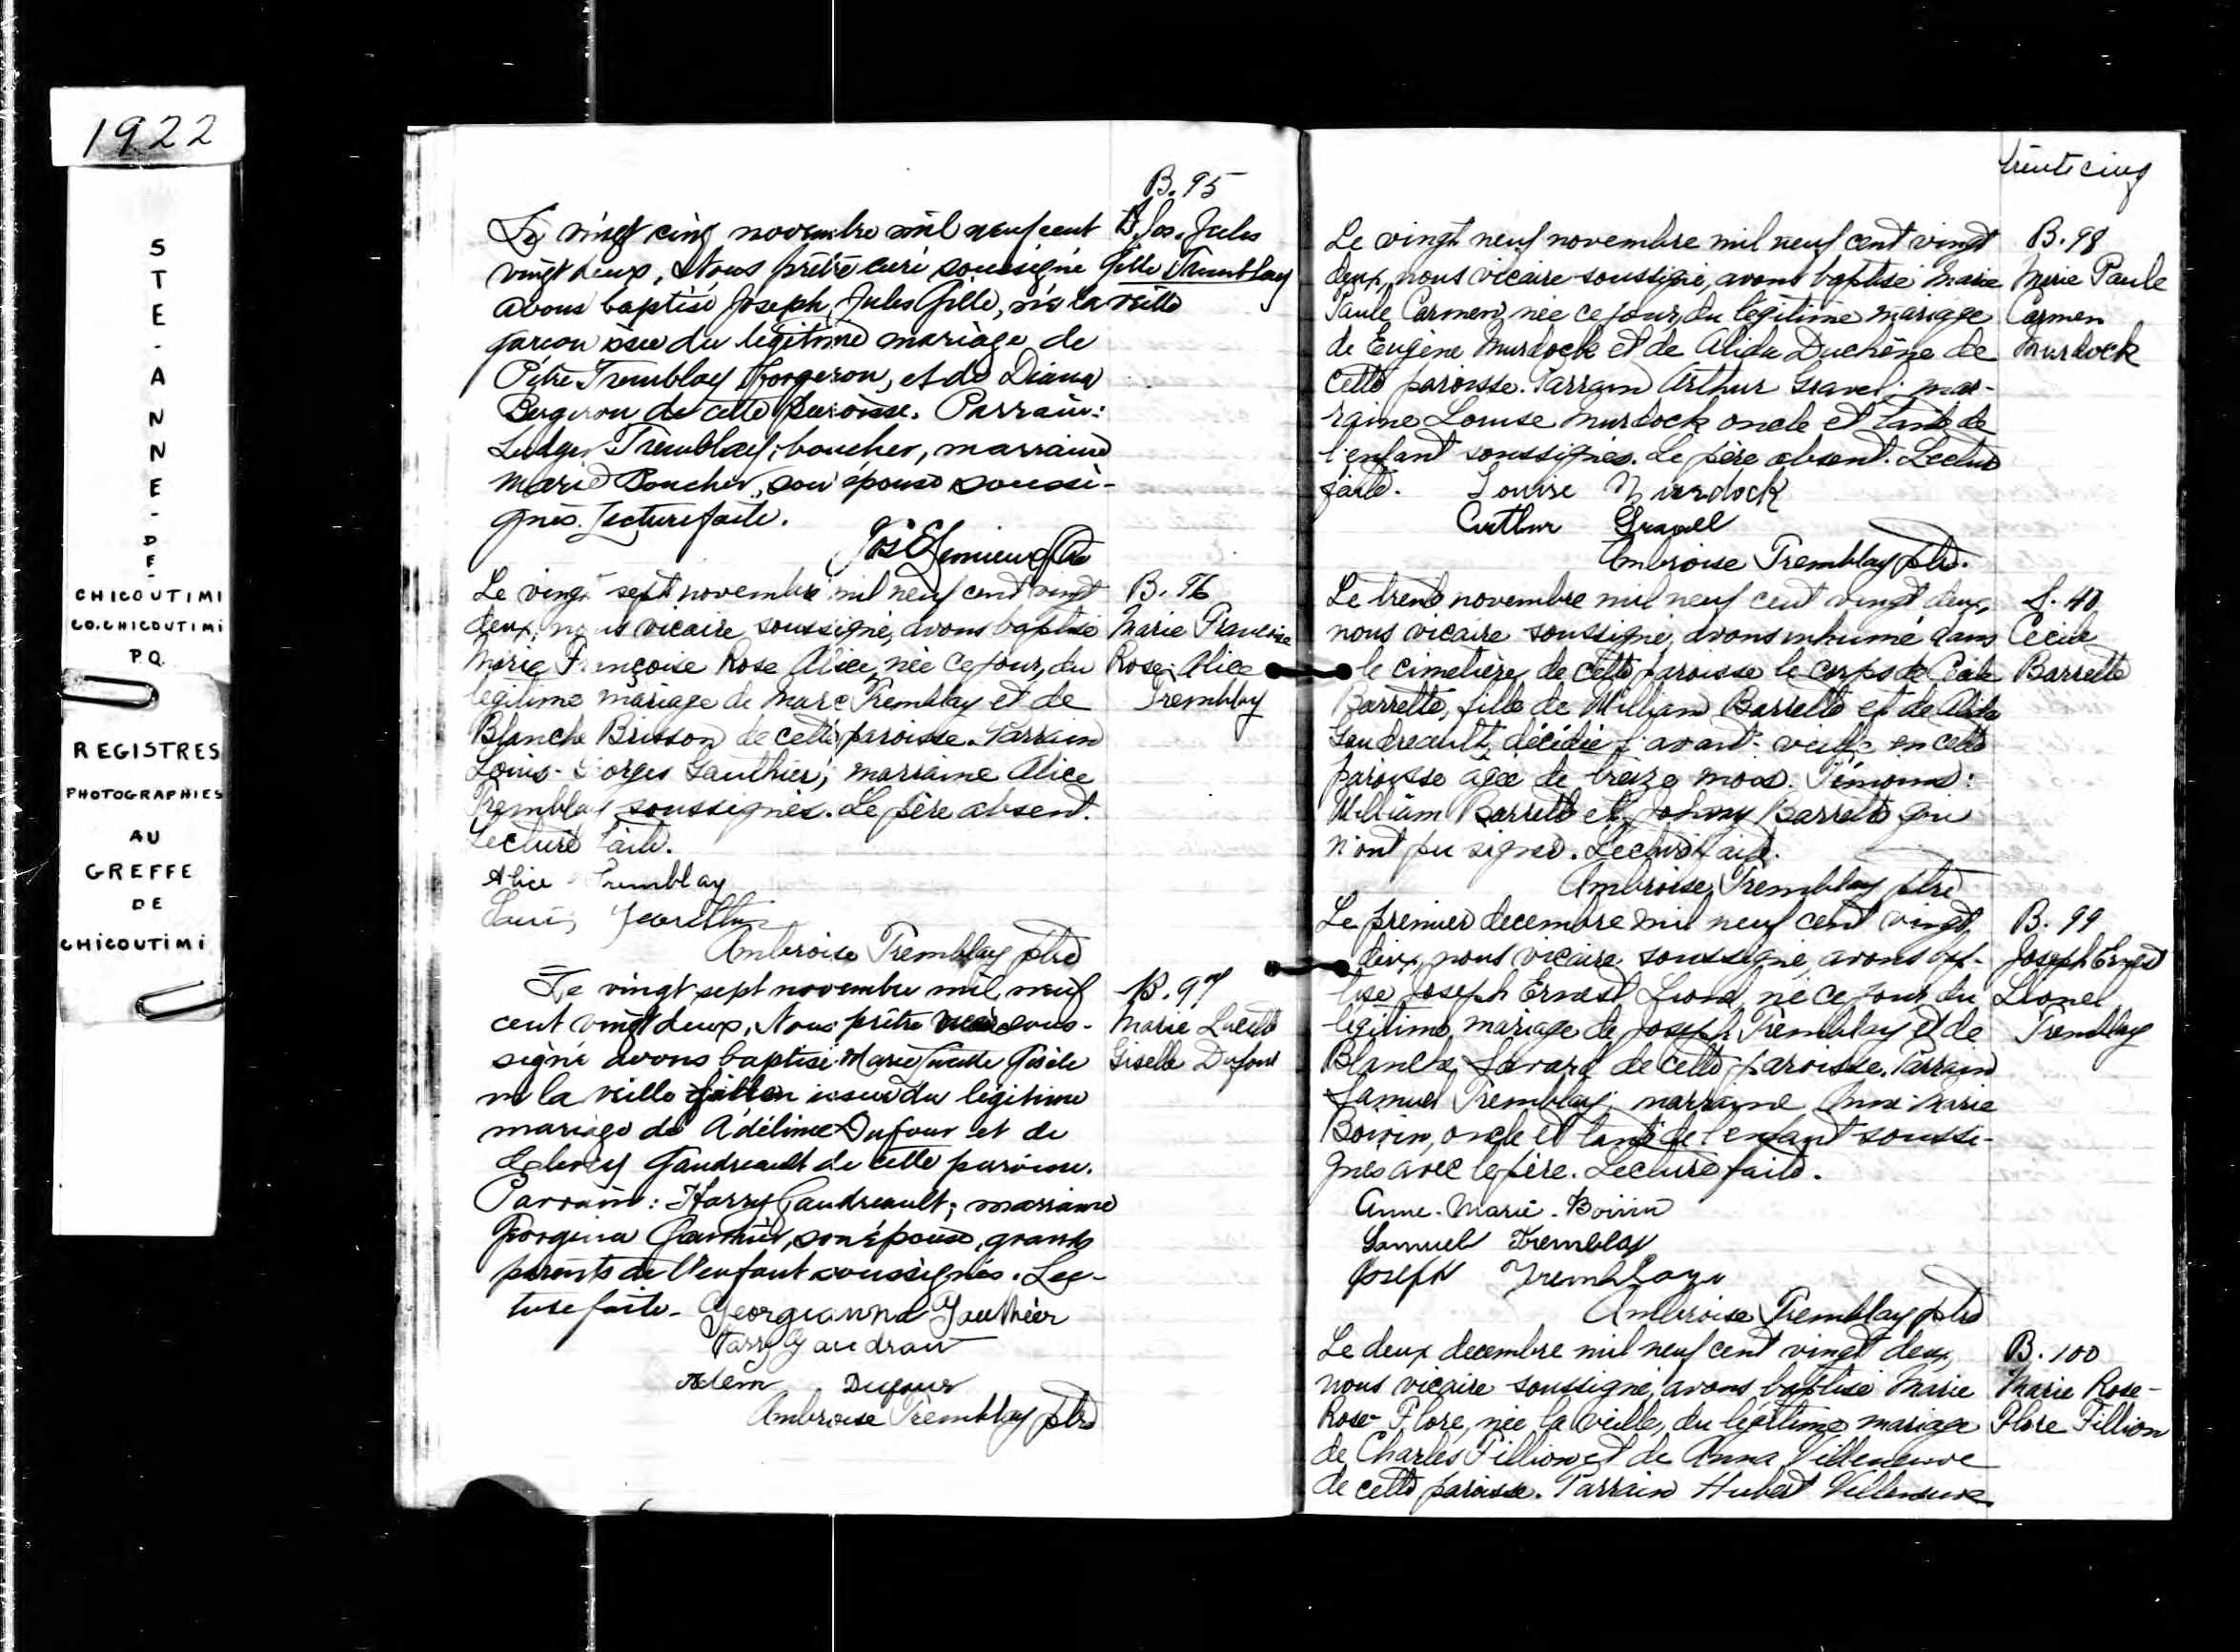 1922
STE-ANNE-DE-
CHICOUTIMI
CO. CHICOUTIMI
P.Q.
REGISTRES
PHOTOGRAPHIES
AU
GREFFE
DE
CHICOUTIMI
B. 95
Jos. Jules
Gille Tremblay
Le vingt cinq novembre mil neuf cent
vingt deux, Nous prêtre curé soussigné
avons baptisé Joseph, Jules Gille, né la veille
garçon issu du légitime mariage de
Pitre Tremblay forgeron, et de Diana
Bergeron de cette paroisse. Parrain:
Ludger Tremblay, boucher, marraine
Marie Boucher, son épouse soussi-
gnés. Lecture faite.
Jos E Lemieux Ptre
B. 96
Marie Francoise
Rose Alice
Tremblay
Le vingt sept novembre mil neuf cent vingt
deux, nous vicaire soussigné, avons baptisé
Marie Françoise Rose Alice, née ce jour, du
légitime mariage de Marc Tremblay et de
Blanche Brisson de cette paroisse. Parrain
Louis-Georges Gauthier, marraine Alice
Tremblay soussignés. Le père absent.
Lecture faite.
Alice Tremblay
Louis
Ambroise Tremblay ptre
B. 97
Marie Lucette
Giselle Dufour
Le vingt sept novembre mil neuf
cent vingt deux, Nous prêtre vicaire sous-
signé avons baptisé Marie Lucette Gisèle
né la veille issue du légitime
mariage de Adélime Dufour et de
Gaudreault de cette paroisse.
Parrain: Harry Gaudreault; marraine
Georgina Gauthier, son épouse, grands
parents de l'enfant soussignés. Lec-
ture faite. Georgianna Gauthier
Harry Gaudrau
Adem Dufour
Ambroise Tremblay ptre
trente cinq
B. 98
Marie Paule
Carmen
Murdock
Le vingt neuf novembre mil neuf cent vingt
deux, nous vicaire soussigné, avons baptisé Marie
Paule Carmen, née ce jour, du légitime mariage
de Eugène Murdock et de Alida Duchêne de
cette paroisse. Parrain Arthur Gravel, mar-
raine Louise Murdock oncle et tante de
l'enfant soussignés. Le père absent. Lecture
faite. Louise Murdock
Arthur Gravel
Ambroise Tremblay ptre.
S. 40
Cécile
Barrette
Le trente novembre mil neuf cent vingt deux,
nous vicaire soussigné, avons inhumé dans
le cimetière de cette paroisse le corps de Cécile
Barrette, fille de William Barrette et de Alida
Gaudreault, décédée l'avant-veille en cette
paroisse âgée de treize mois. Témoins:
William Barrette et Johnny Barrette qui
n'ont pu signer. Lecture faite.
Ambroise Tremblay ptre
B. 99
Joseph Ernest
Lionel
Tremblay
Le premier decembre mil neuf cent vingt
deux, nous vicaire soussigné, avons bap-
tisé Joseph Ernest Lionel, né ce jour, du
légitime mariage de Joseph Tremblay et de
Blanche Savard de cette paroisse. Parrain
Samuel Tremblay, marraine Anne-Marie
Boivin, oncle et tante de l'enfant soussi-
gnés avec le père. Lecture faite.
Anne-Marie-Boivin
Samuel Tremblay
Joseph Tremblaye
Ambroise Tremblay ptre
B. 100
Marie Rose-
Flore Fillion
Le deux decembre mil neuf cent vingt deux,
nous vicaire soussigné, avons baptisé Marie
Rose-Flore, née la veille, du légitime mariage
de Charles Fillion et de Anna Villeneuve
de cette paroisse. Parrain Hubert Villeneuve